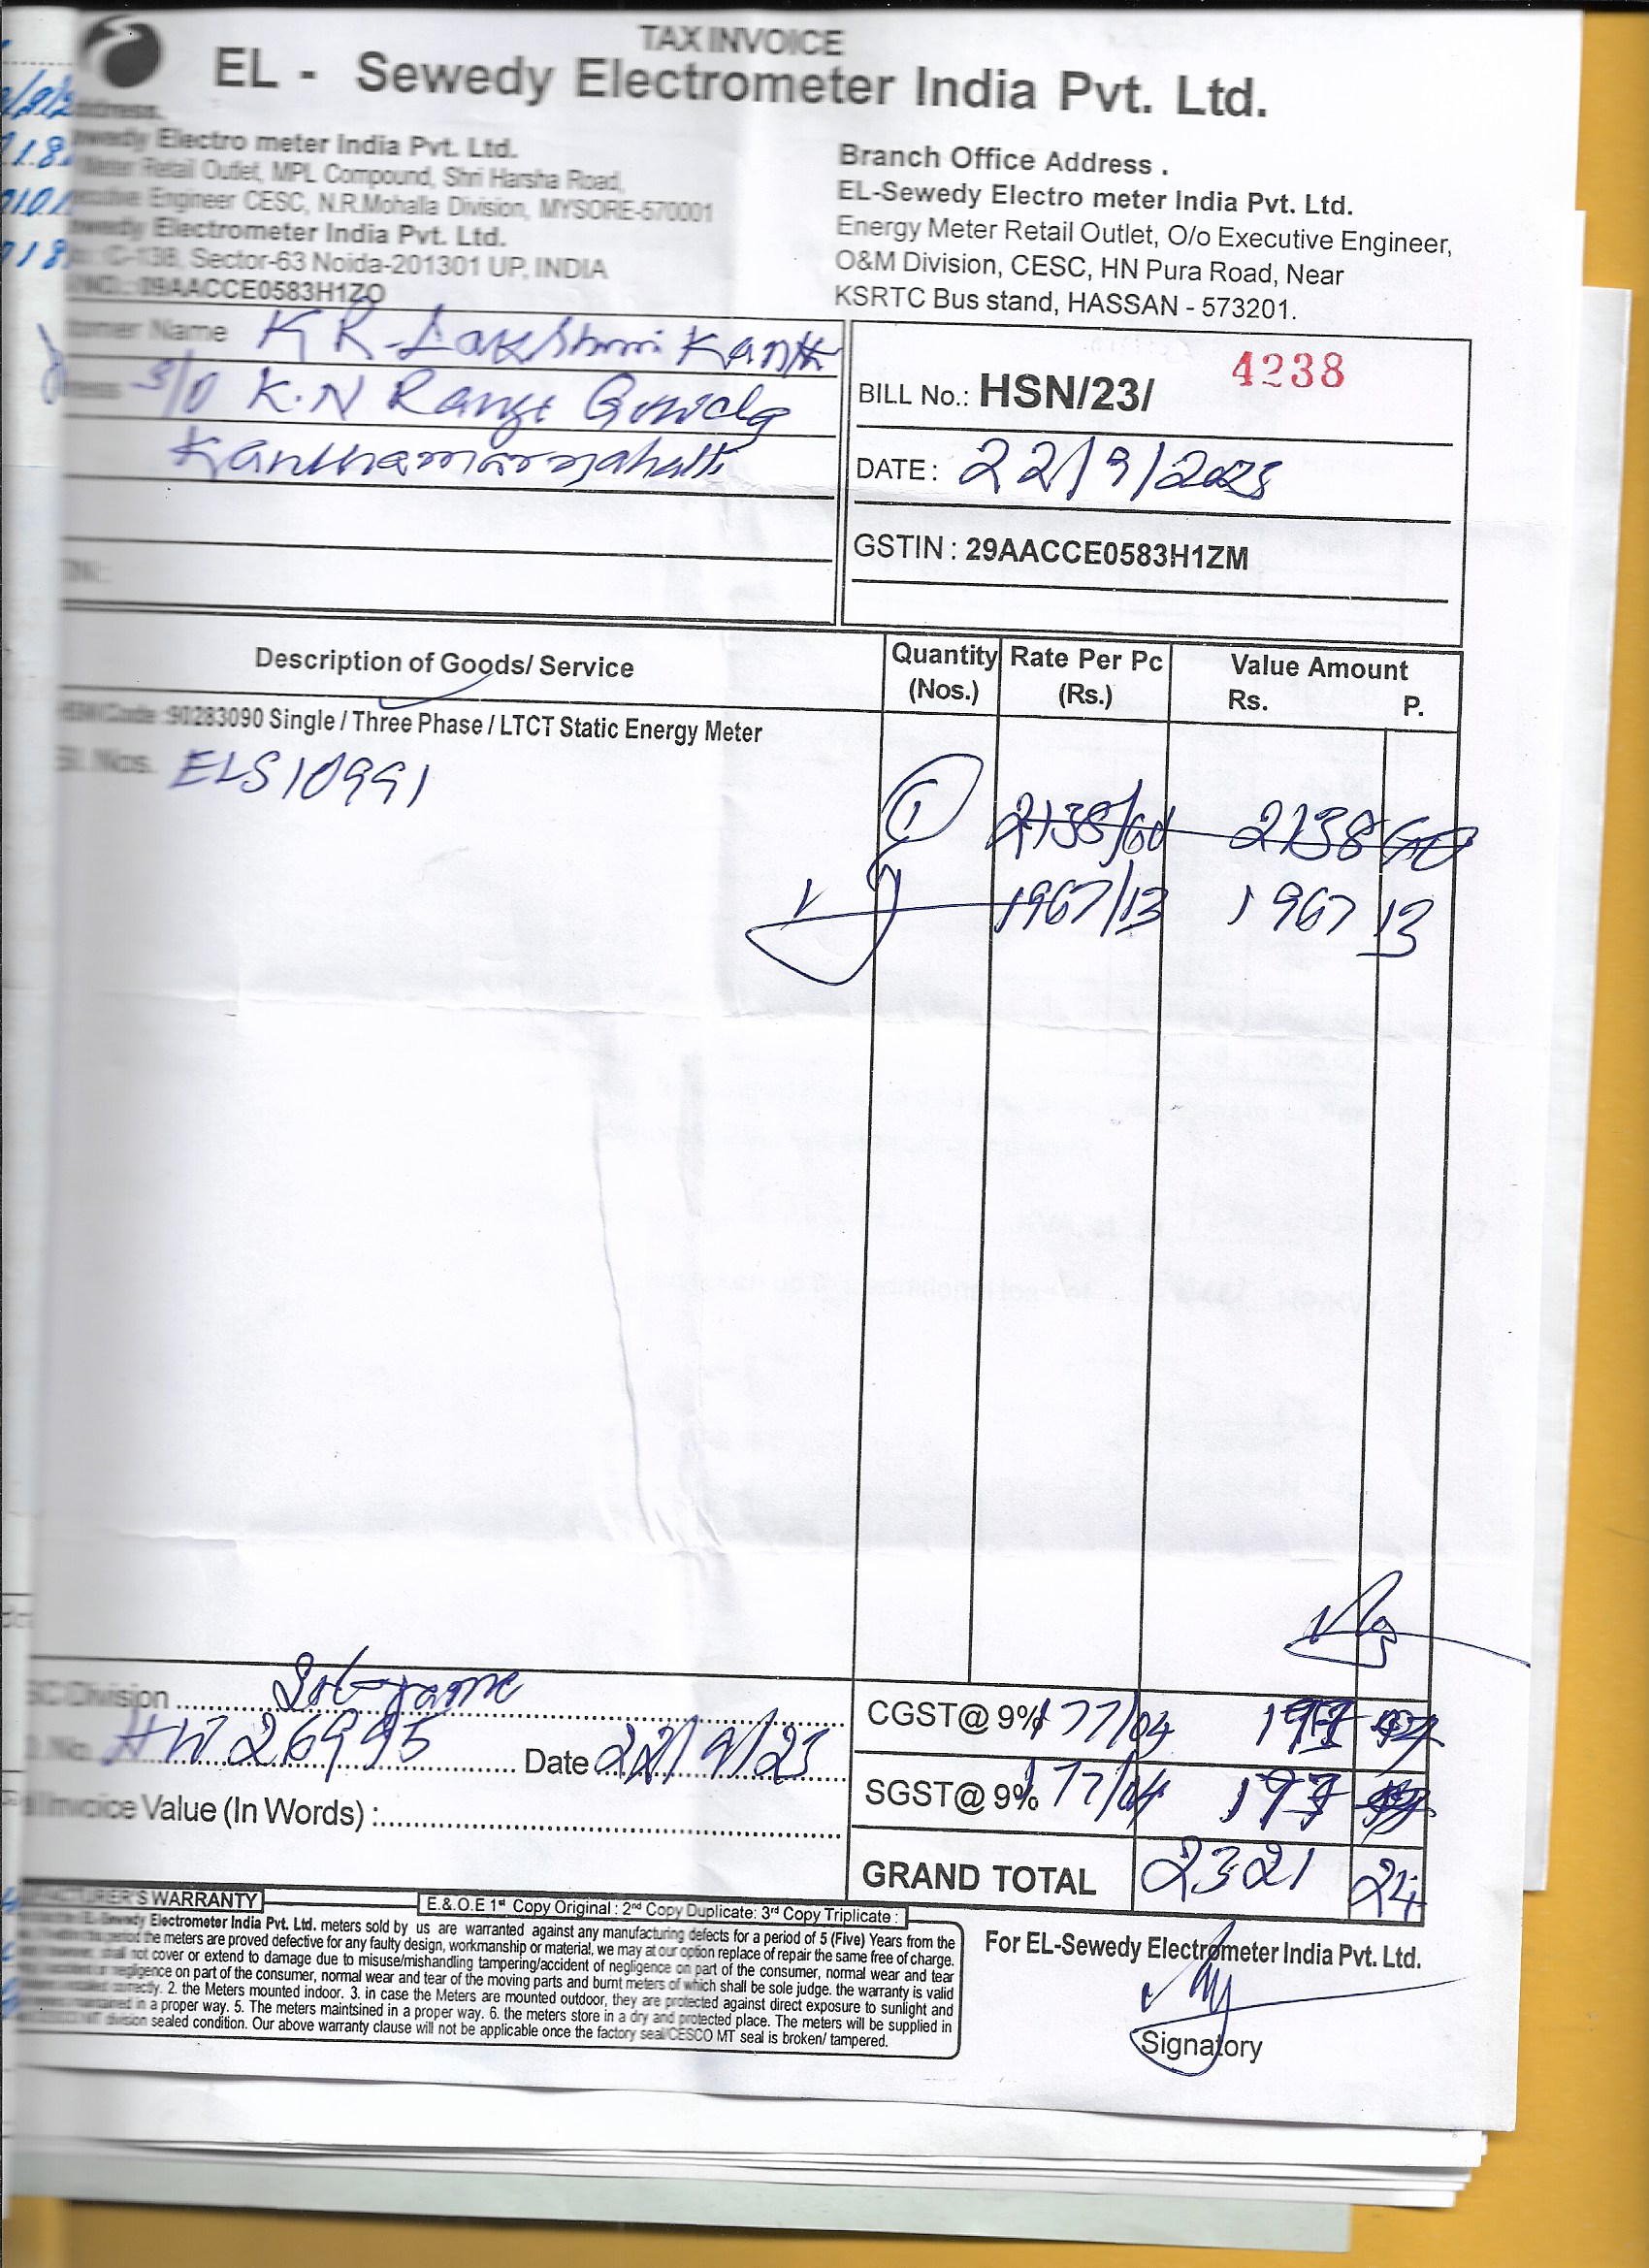 TAX INVOICE
EL - Sewedy Electrometer India Pvt. Ltd.
ddress.
wedy Electro meter India Pvt. Ltd.
Meter Retail Outlet, MPL Compound, Shri Harsha Road,
ecutive Engineer CESC, N.R.Mohalla Division, MYSORE-570001
wedy Electrometer India Pvt. Ltd.
C-138, Sector-63 Noida-201301 UP, INDIA
09AACCE0583H1ZO
Branch Office Address .
EL-Sewedy Electro meter India Pvt. Ltd.
Energy Meter Retail Outlet, O/o Executive Engineer,
O&M Division, CESC, HN Pura Road, Near
KSRTC Bus stand, HASSAN - 573201.
tomer Name K R Lakshmi Kanth
S/O K.N Range Gowda
BILL No.: HSN/23/ 4238
DATE : 22/9/2023
GSTIN : 29AACCE0583H1ZM
Description of Goods/ Service
Quantity (Nos.)
Rate Per Pc (Rs.)
Value Amount
Rs. P.
HSN Code :90283090 Single / Three Phase / LTCT Static Energy Meter
Sl. Nos. ELS10991
1 2138/60 2138 60
1967/13 1967 13
Division
HW 26995 Date 22/9/23
Invoice Value (In Words) :
CGST@ 9% 177/04 177
SGST@ 9% 177/04 177
GRAND TOTAL 2321 24
FACTURER'S WARRANTY
E.& O.E 1st Copy Original : 2nd Copy Duplicate: 3rd Copy Triplicate :
Electrometer India Pvt. Ltd. meters sold by us are warranted against any manufacturing defects for a period of 5 (Five) Years from the
the meters are proved defective for any faulty design, workmanship or material, we may at our option replace of repair the same free of charge.
shall not cover or extend to damage due to misuse/mishandling tampering/accident of negligence on part of the consumer, normal wear and tear
or negligence on part of the consumer, normal wear and tear of the moving parts and burnt meters of which shall be sole judge. the warranty is valid
correctly. 2. the Meters mounted indoor. 3. in case the Meters are mounted outdoor, they are protected against direct exposure to sunlight and
in a proper way. 5. The meters maintsined in a proper way. 6. the meters store in a dry and protected place. The meters will be supplied in
division sealed condition. Our above warranty clause will not be applicable once the factory seal/CESCO MT seal is broken/ tampered.
For EL-Sewedy Electrometer India Pvt. Ltd.
Signatory